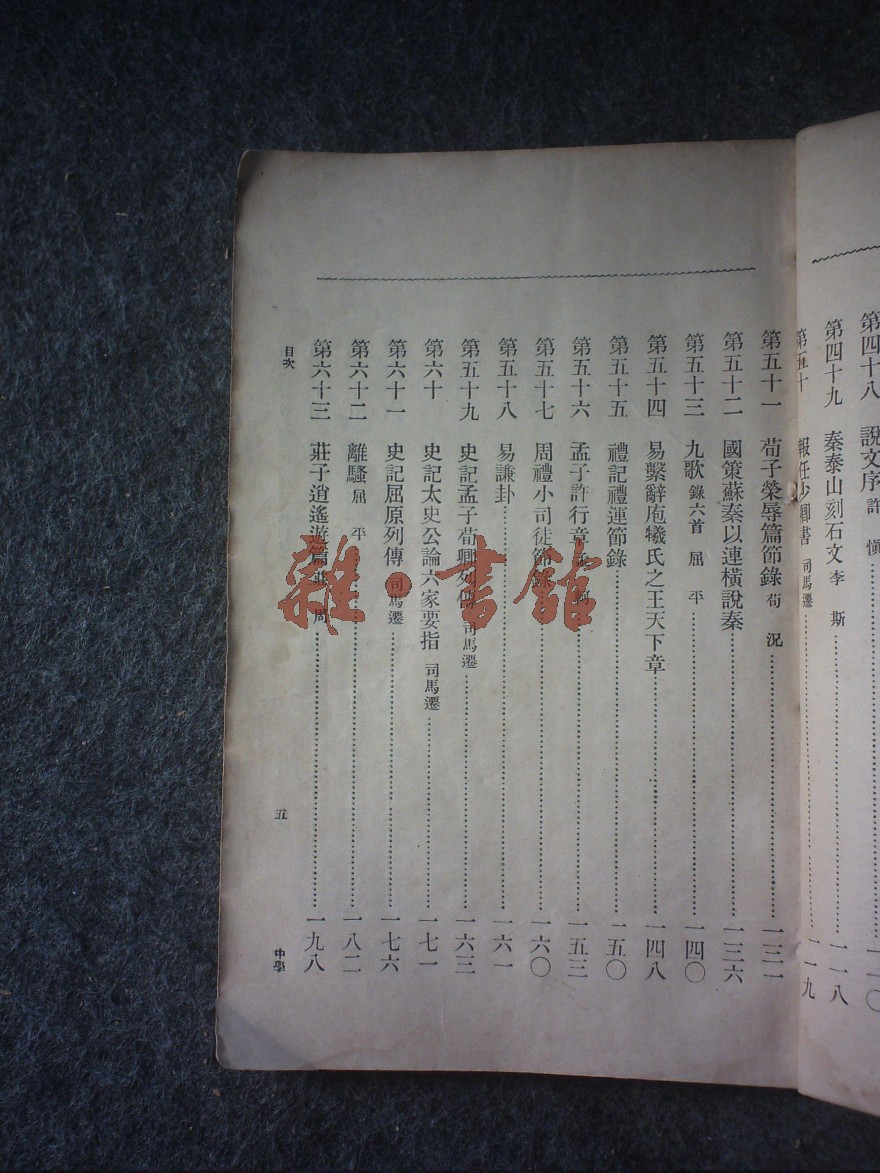 第四十八 說文序 許 慎 一一〇
第四十九 秦泰山刻石文 李 斯 一一八
第五十 報任少卿書 司馬遷 一一九
第五十一 荀子榮辱篇節錄 荀 況 一三一
第五十二 國策蘇秦以連橫說秦 一三六
第五十三 九歌 錄六首 屈 平 一四〇
第五十四 易繫辭庖犧氏之王天下章 一四八
第五十五 禮記禮運節錄 一五〇
第五十六 孟子許行章 孟 軻 一五三
第五十七 周禮小司徒節錄 一六〇
第五十八 易謙卦 一六一
第五十九 史記孟子荀卿列傳 司馬遷 一六三
第六十 史記太史公論六家要指 司馬遷 一七一
第六十一 史記屈原列傳 司馬遷 一七六
第六十二 離騷 屈 平 一八二
第六十三 莊子逍遙遊篇 莊 周 一九八
目次 五 中學
雜·書館